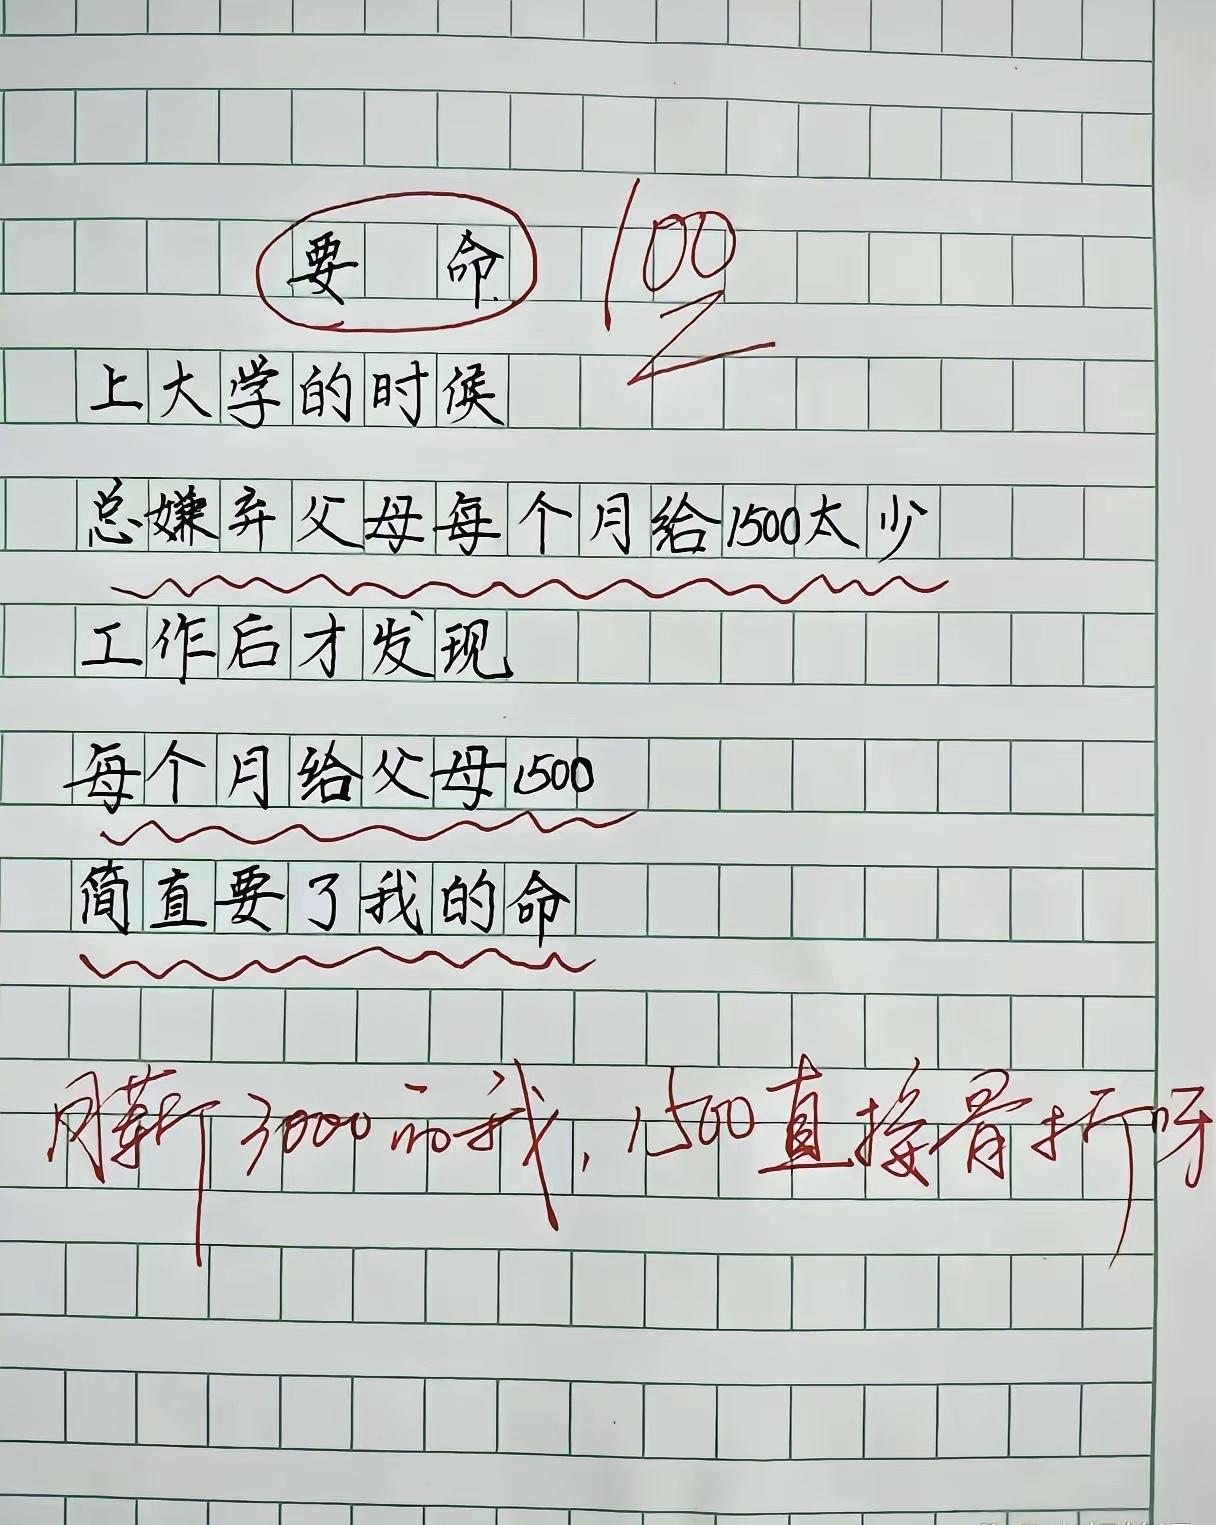 要命 100
上大学的时候
总嫌弃父母每个月给1500太少
工作后才发现
每个月给父母1500
简直要了我的命
月薪3000的我，1500直接骨折呀